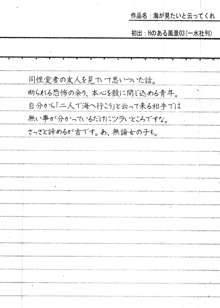 作品名:海が見たいと云ってくれ
初出:Hのある風景03(一水社刊)
同性愛者の友人を見ていて思いついた話。
断られる恐怖の余り、本心を殻に閉じ込める青年。
自分から「二人で海へ行こう」と云って来る相手では
無い事が分かっているだけにツライところですな。
さっさと諦めるが吉です。あ、無論女の子も。